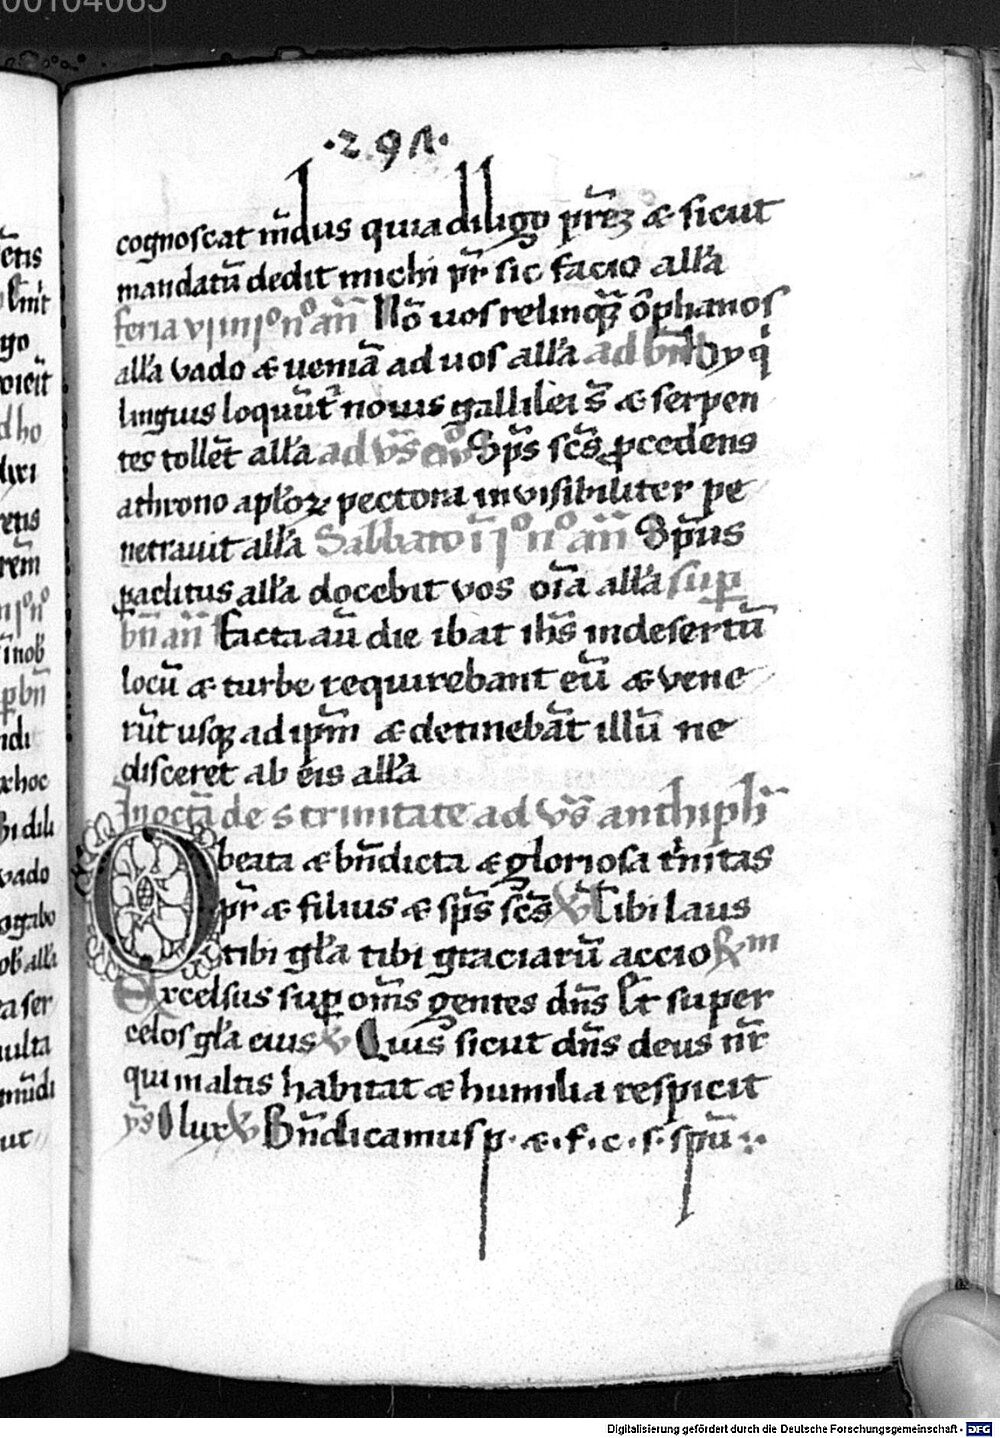 00104065
·291·
cognoscat mu̅dus quia diligo p̅rez & sicut
mandatu̅ dedit michi p̅r sic facio all'a
feria vj iiijº nº an̅ No̅ vos relinqua̅ orphanos
all'a vado & venia̅ ad vos all'a ad bn̅ hy q'
linguis loqu̅ut' novis gallilei s̅ & serpen
tes tolle̅t all'a ad vs̅ Sp̅s sc̅s p̱cedens
a throno ap̅loꝝ pectora invisibiliter pe
netrauit all'a Sabbato ijº nº an̅ Sp̅us
ꝑaclitus all'a docebit vos o̅ia all'a sup̱
bn̅ an̅ facta au̅ die ibat ih̅s in desertu̅
locu̅ & turbe requirebant eu̅ & vene
ru̅t usqꝫ ad ip̅m & detineba̅t illu̅ ne
disceret ab eis all'a
In octa̅ de s trinitate ad vs̅ anthiph̅
O beata & bn̅dicta & gloriosa t'nitas
p̅r & filius & sp̅s sc̅s ꝟ Tibi laus
tibi gl'a tibi graciaru̅ accio Rm
Excelsus sup̱ om̅s gentes dn̅s Et super
celos gl'a eius ꝟ Quis sicut dn̅s deus nr̅
qui in altis habitat & humilia respicit
ys̅ O lux ꝟ Bn̅dicamus p · & · f · c · s · spu̅
Digitalisierung gefördert durch die Deutsche Forschungsgemeinschaft - DFG